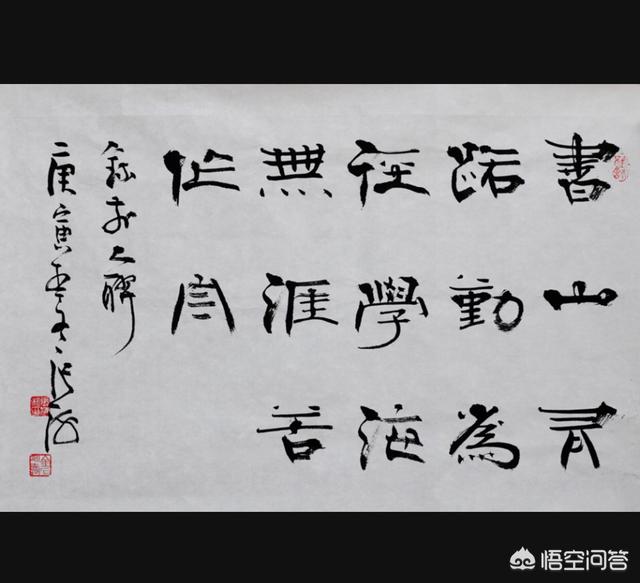 書山有
路勤為
徑學海
無涯苦
作舟
庚寅
悟空问答